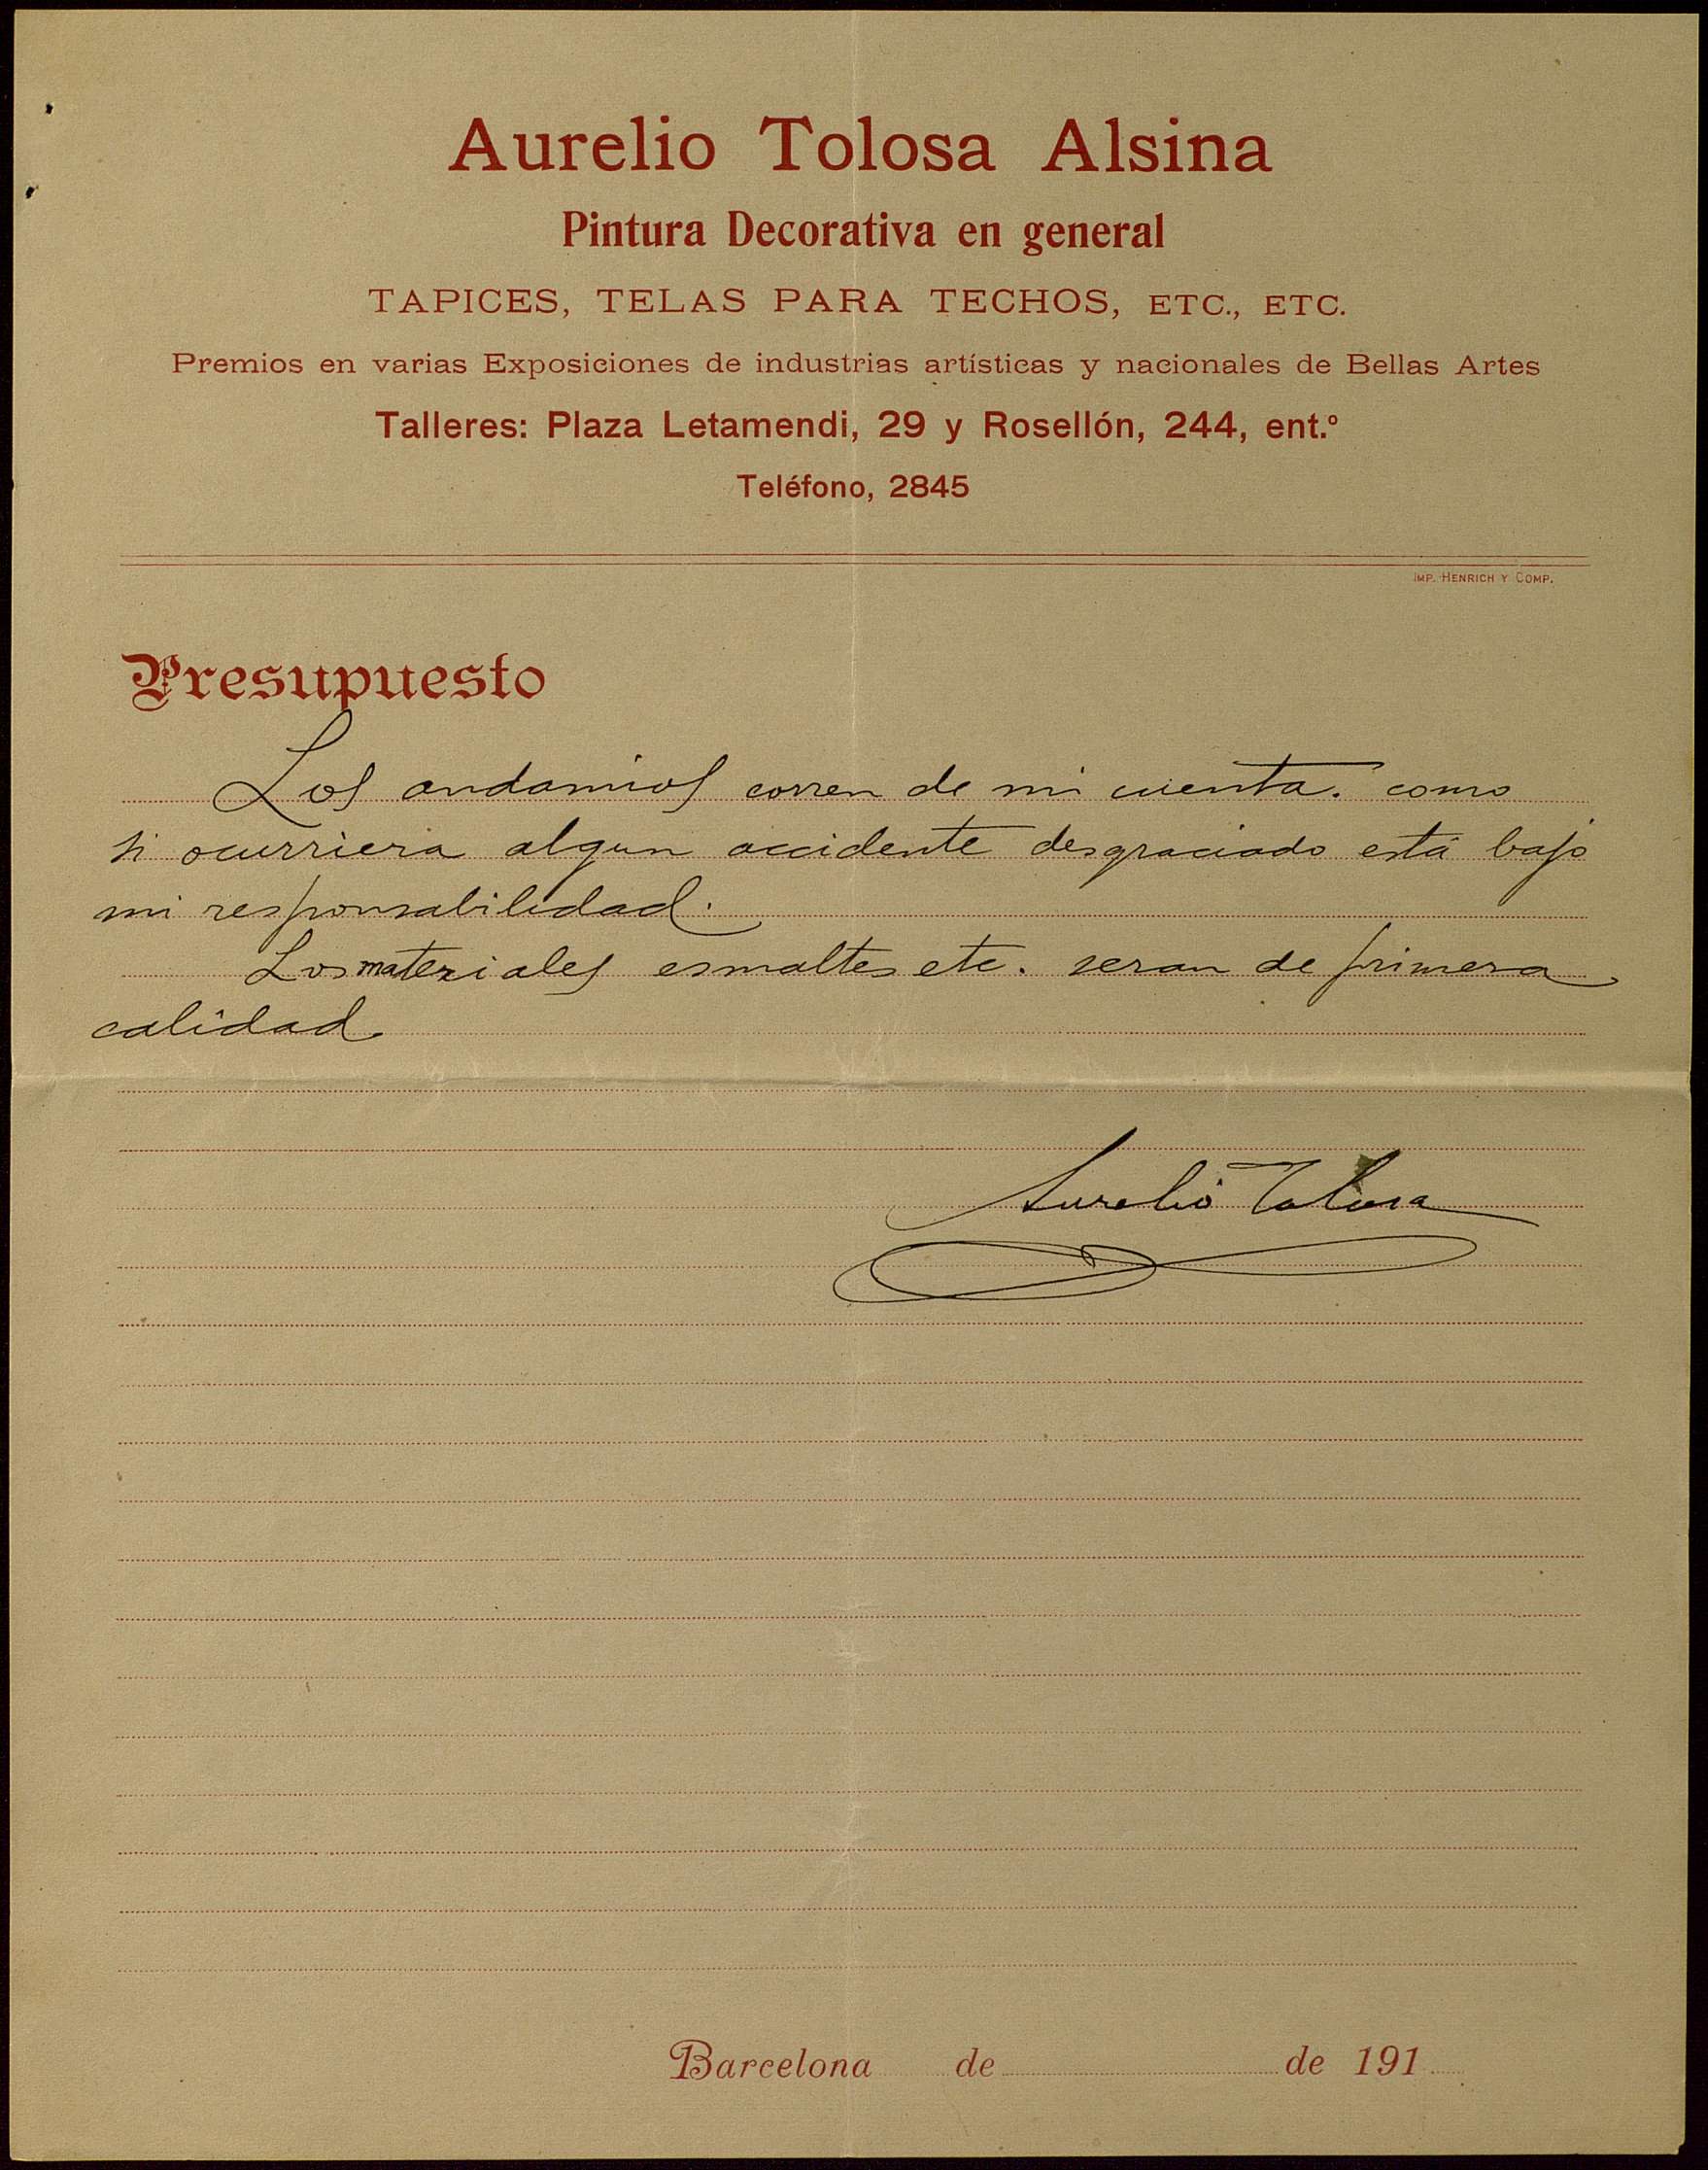 Aurelio Tolosa Alsina
Pintura Decorativa en general
TAPICES, TELAS PARA TECHOS, ETC., ETC.
Premios en varias Exposiciones de industrias artísticas y nacionales de Bellas Artes
Talleres: Plaza Letamendi, 29 y Rosellón, 244, ent.º
Teléfono, 2845
IMP. HENRICH Y COMP.
Presupuesto
Los andamios corren de mi cuenta. como
si ocurriera algun accidente desgraciado está bajo
mi responsabilidad.
Los materiales esmaltes etc. seran de primera
calidad
Aurelio Tolosa
Barcelona de de 191